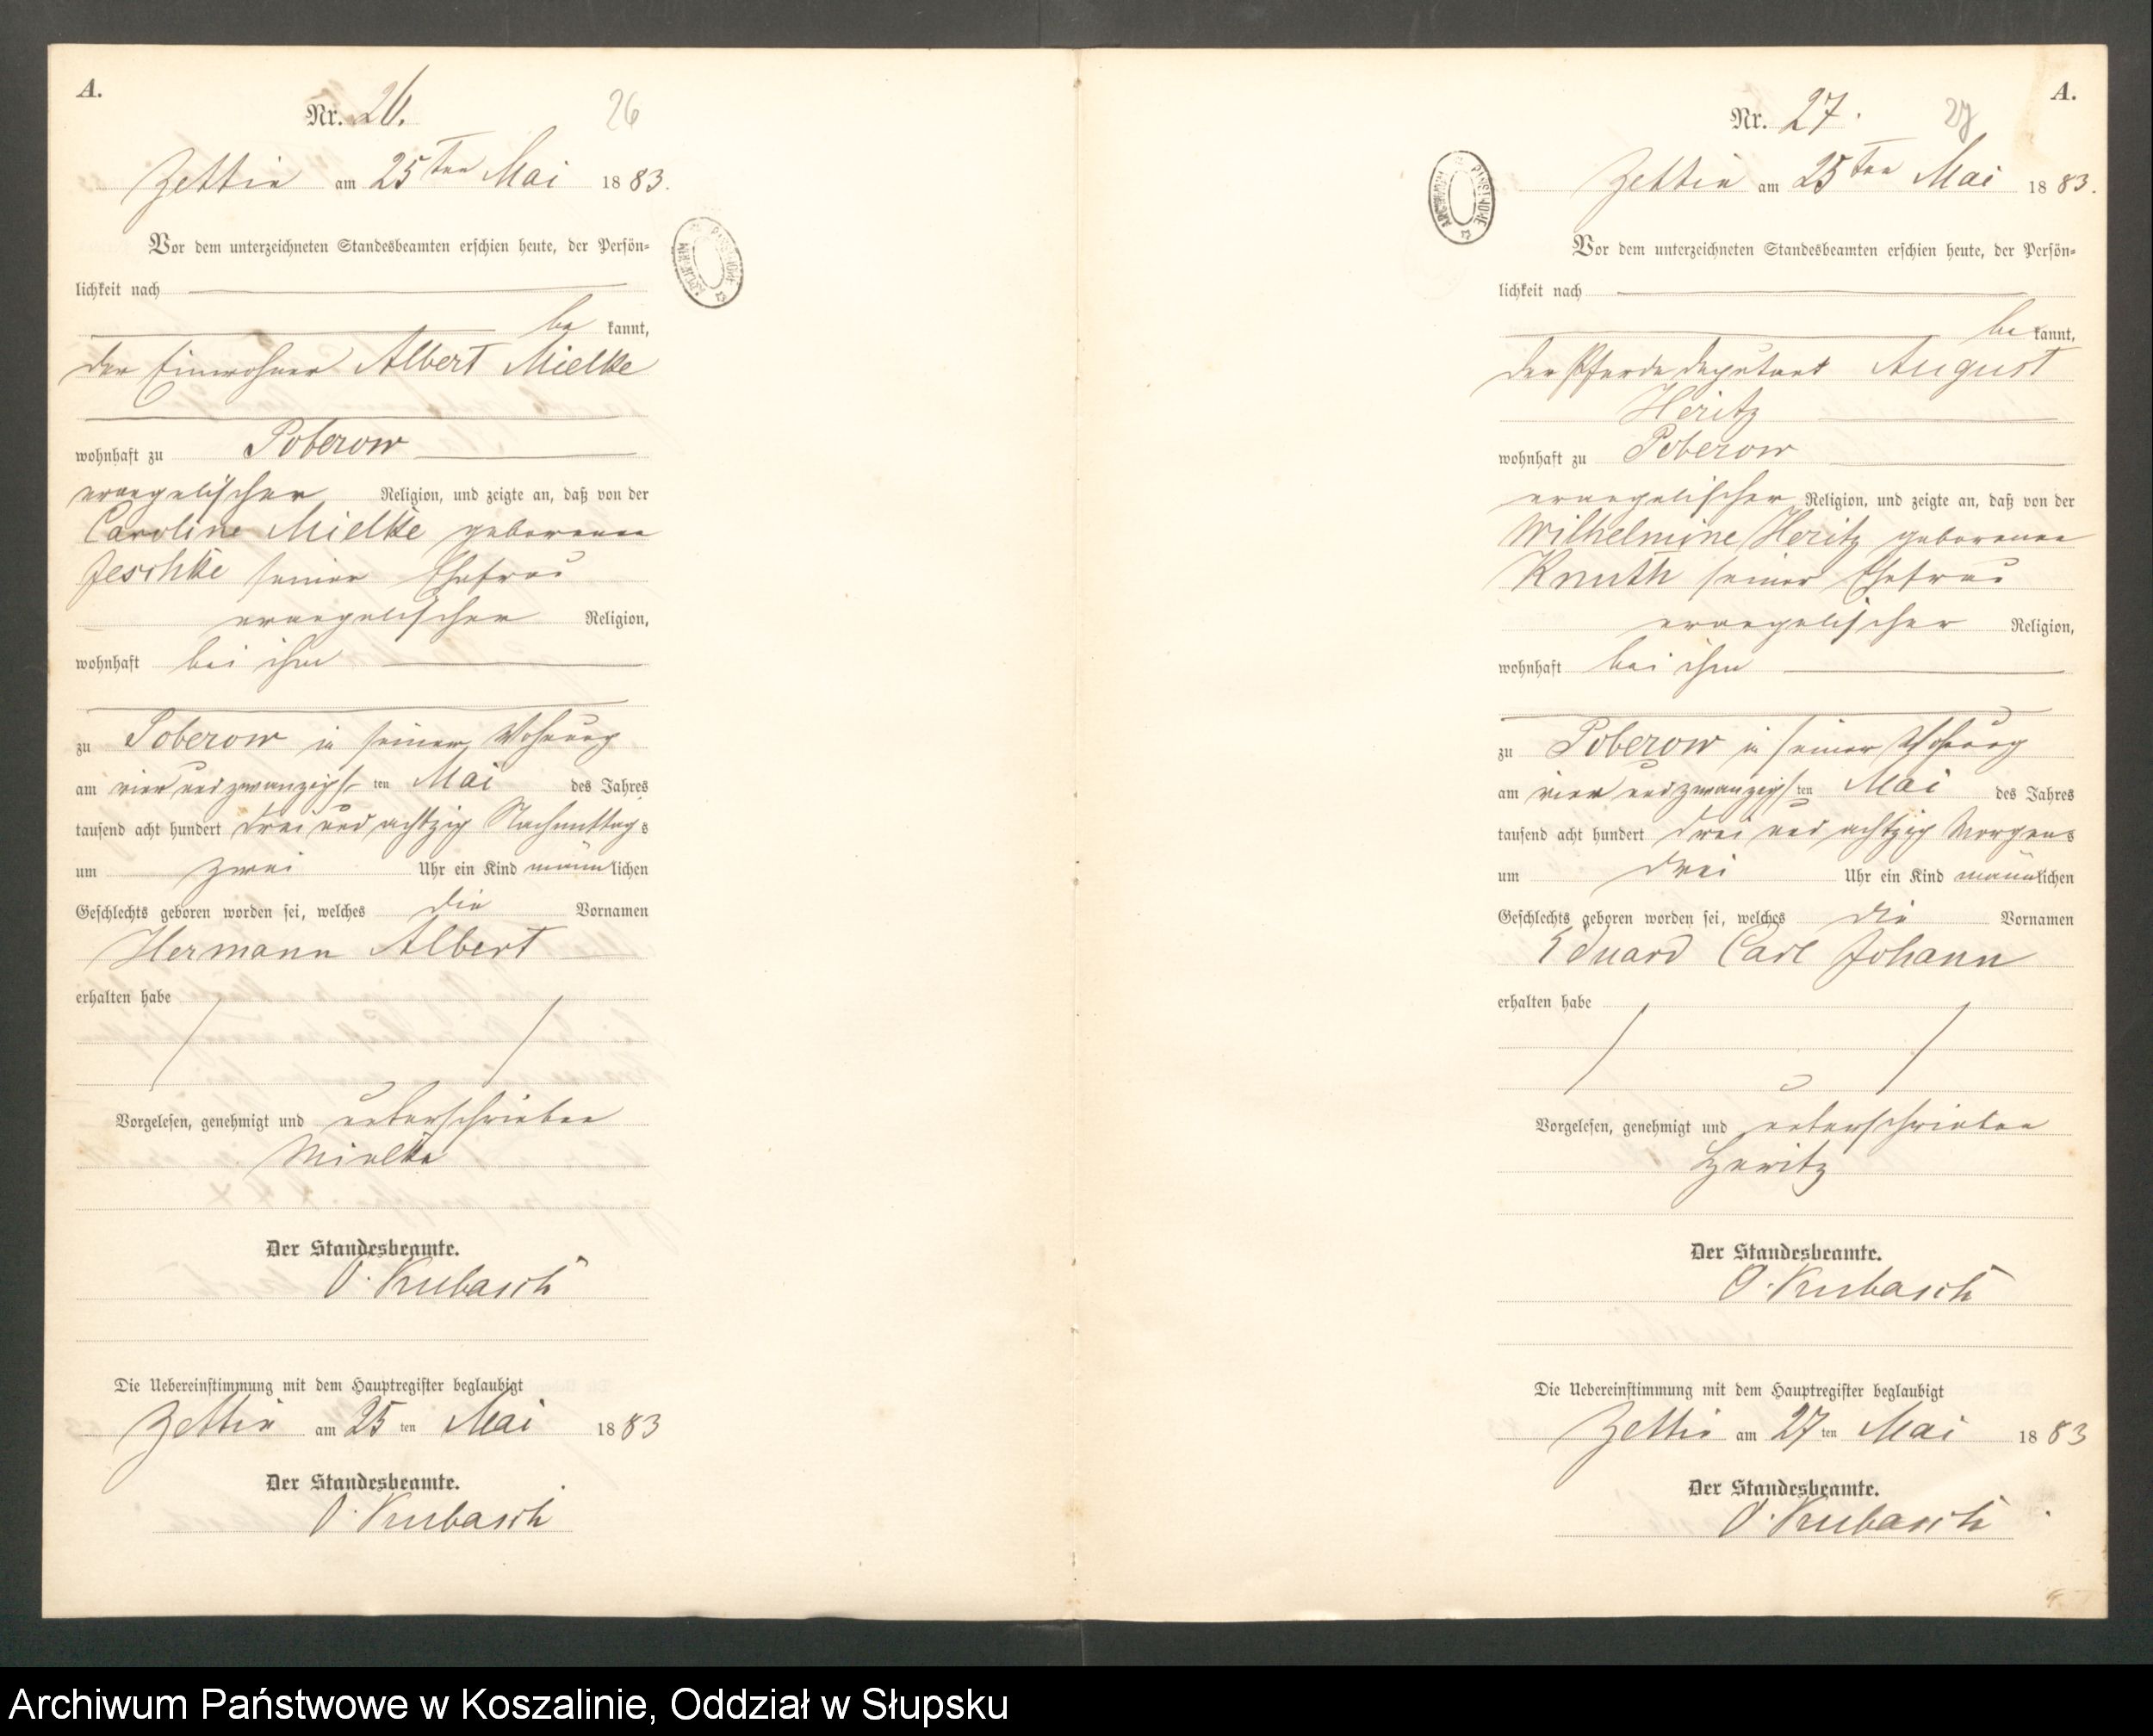 A.
Nr. 26.
26
Zettin am 25ten Mai 1883.
Vor dem unterzeichneten Standesbeamten erschien heute, der Persön-
lichkeit nach
be kannt,
der Einwohner Albert Mielke
wohnhaft zu Poberow
evangelischer Religion, und zeigte an, daß von der
Caroline Mielke geborenen
Jeschke seiner Ehefrau
evangelischer Religion,
wohnhaft bei ihm
zu Poberow in seiner Wohnung
am vier und zwanzigsten Mai des Jahres
tausend acht hundert drei und achtzig Nachmittags
um zwei Uhr ein Kind männlichen
Geschlechts geboren worden sei, welches die Vornamen
Hermann Albert
erhalten habe
Vorgelesen, genehmigt und unterschrieben
Mielke
Der Standesbeamte.
O. Kubasch
Die Uebereinstimmung mit dem Hauptregister beglaubigt
Zettin am 25 ten Mai 1883
Der Standesbeamte.
O. Kubasch
ARCHIWUM PAŃSTWOWE
A.
Nr. 27.
27
Zettin am 25ten Mai 1883.
Vor dem unterzeichneten Standesbeamten erschien heute, der Persön-
lichkeit nach
be kannt,
der Pferdedeputant August
Heritz
wohnhaft zu Poberow
evangelischer Religion, und zeigte an, daß von der
Wilhelmine Heritz geborenen
Knuth seiner Ehefrau
evangelischer Religion,
wohnhaft bei ihm
zu Poberow in seiner Wohnung
am vier und zwanzigsten Mai des Jahres
tausend acht hundert drei und achtzig Morgens
um drei Uhr ein Kind männlichen
Geschlechts geboren worden sei, welches die Vornamen
Eduard Carl Johann
erhalten habe
Vorgelesen, genehmigt und unterschrieben
Heritz
Der Standesbeamte.
O. Kubasch
Die Uebereinstimmung mit dem Hauptregister beglaubigt
Zettin am 27 ten Mai 1883
Der Standesbeamte.
O. Kubasch
ARCHIWUM PAŃSTWOWE
Archiwum Państwowe w Koszalinie, Oddział w Słupsku